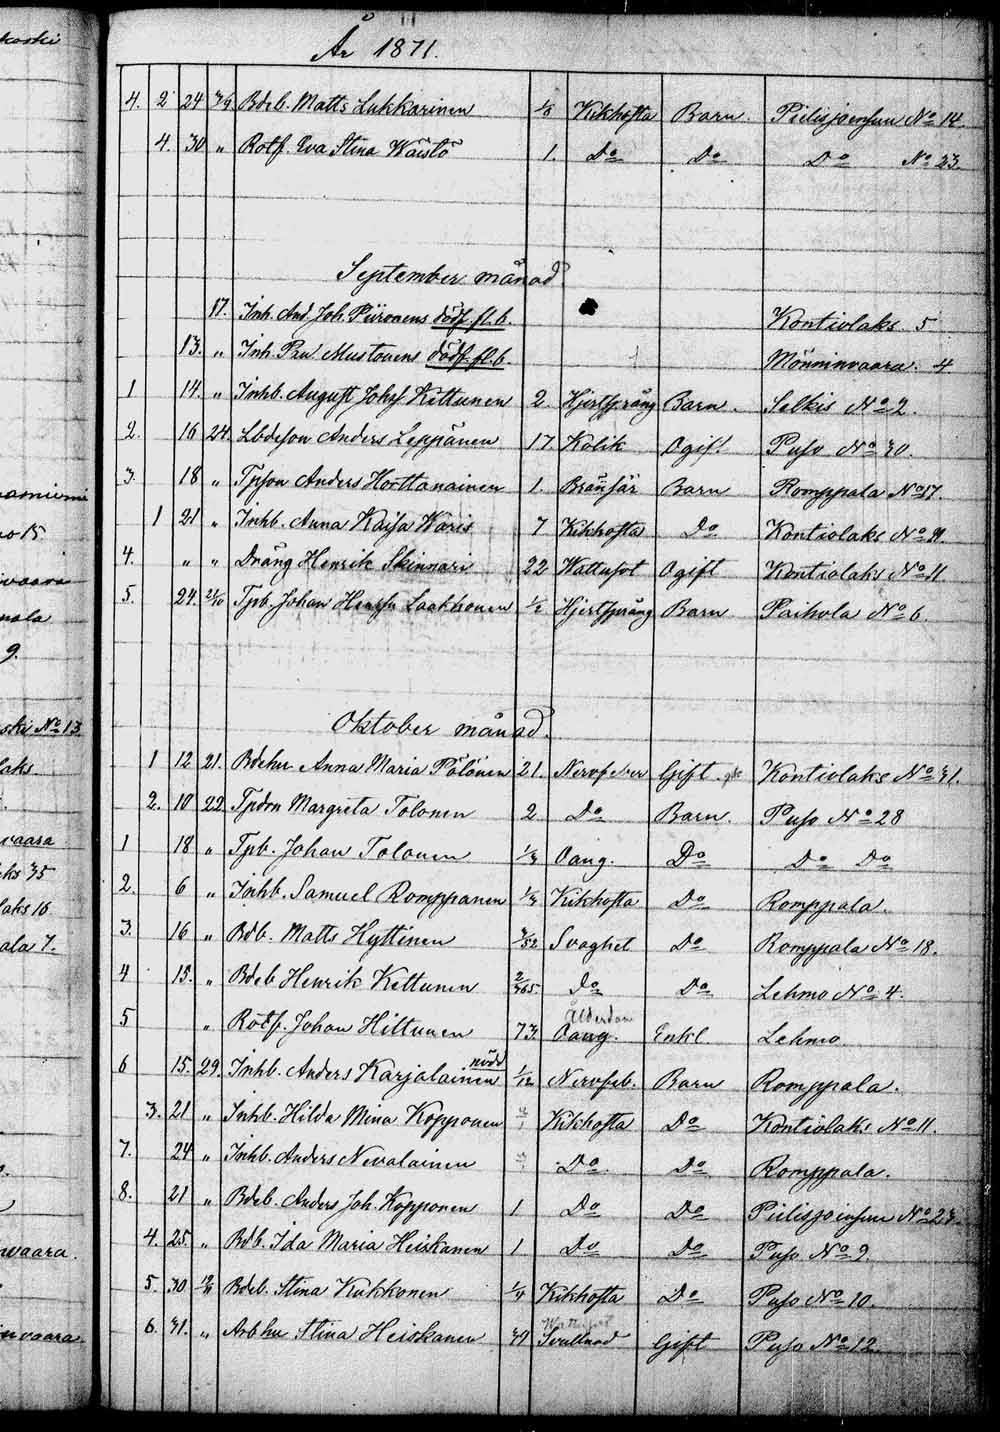 År 1871.
4. 2 24 3/9 Bdeb. Matts Lukkarinen 1/3 Kikhosta Barn. Pielisjoensuu No 14.
4. 30 " Rotf. Eva Stina Wäistö 1. Do Do Do No 23.
September månad.
17. Inh. And. Joh. Piironens dödf. fl. b. Kontiolaks 5
13. " Inh. Mustonens dödf. fl. b. Mönninvaara. 4
1 14. " Inhb. August Johs Kettunen 2. Hjertsprång Barn. Selkis No 2.
2. 16 24. Lbdeson Anders Leppänen 17. Kolik Ogift Puso No 30.
3. 18 " Tpson Anders Horttanainen 1. Bränsår Barn Romppala No 17.
1 21 " Inhb. Anna Kaisa Waris 7 Kikhosta Do Kontiolaks No 9.
4. " " Dräng Henrik Skinnari 22 Wattusot Ogift Kontiolaks No 11
5. 24. 21/10 Tpb. Johan Laakkonen 1/2 Hjertsprång Barn Paihola No 6.
Oktober månad.
1 12 21. Bdehu Anna Maria Pölönen 21. Nervfeber Gift Kontiolaks No 31.
2. 10 22 Tpdon Margreta Tolonen 2 Do Barn. Puso No 28
1 18 " Tpb. Johan Tolonen 1/3 Oang. Do Do Do
2. 6 " Inhb. Samuel Romppanen 1/3 Kikhosta Do Romppala.
3. 16 " Bdb. Matts Hyttinen 3/52 Svaghet Do Romppala No 18.
4 15. " Bdeb Henrik Kettunen 2/365 Do Do Lehmo No 4.
Ålderdom
5 " Rotf. Johan Hiltunen 73. Oang. Enkl. Lehmo
6 15. 29. Inhb. Anders Karjalainen nödd 1/12 Nervfeb. Barn Romppala.
3. 21 " Inhb. Hilda Mina Kopponen Kikhosta Do Kontiolaks No 11.
7. 24 " Inhb. Anders Nevalainen Do Do Romppala.
8. 21 " Bdeb. Anders Joh. Kopponen 1 Do Do Pielisjoensuu No 23.
4. 25. " Bdb. Ida Maria Heiskanen 1 Do Do Puso No 9.
5. 30 12/11 Bdeb. Stina Kukkonen 1/4 Kikhosta Do Puso No 10.
Wattusot
6. 31. " Arbhu Stina Heiskanen 37 Svullnad Gift Puso No 12.